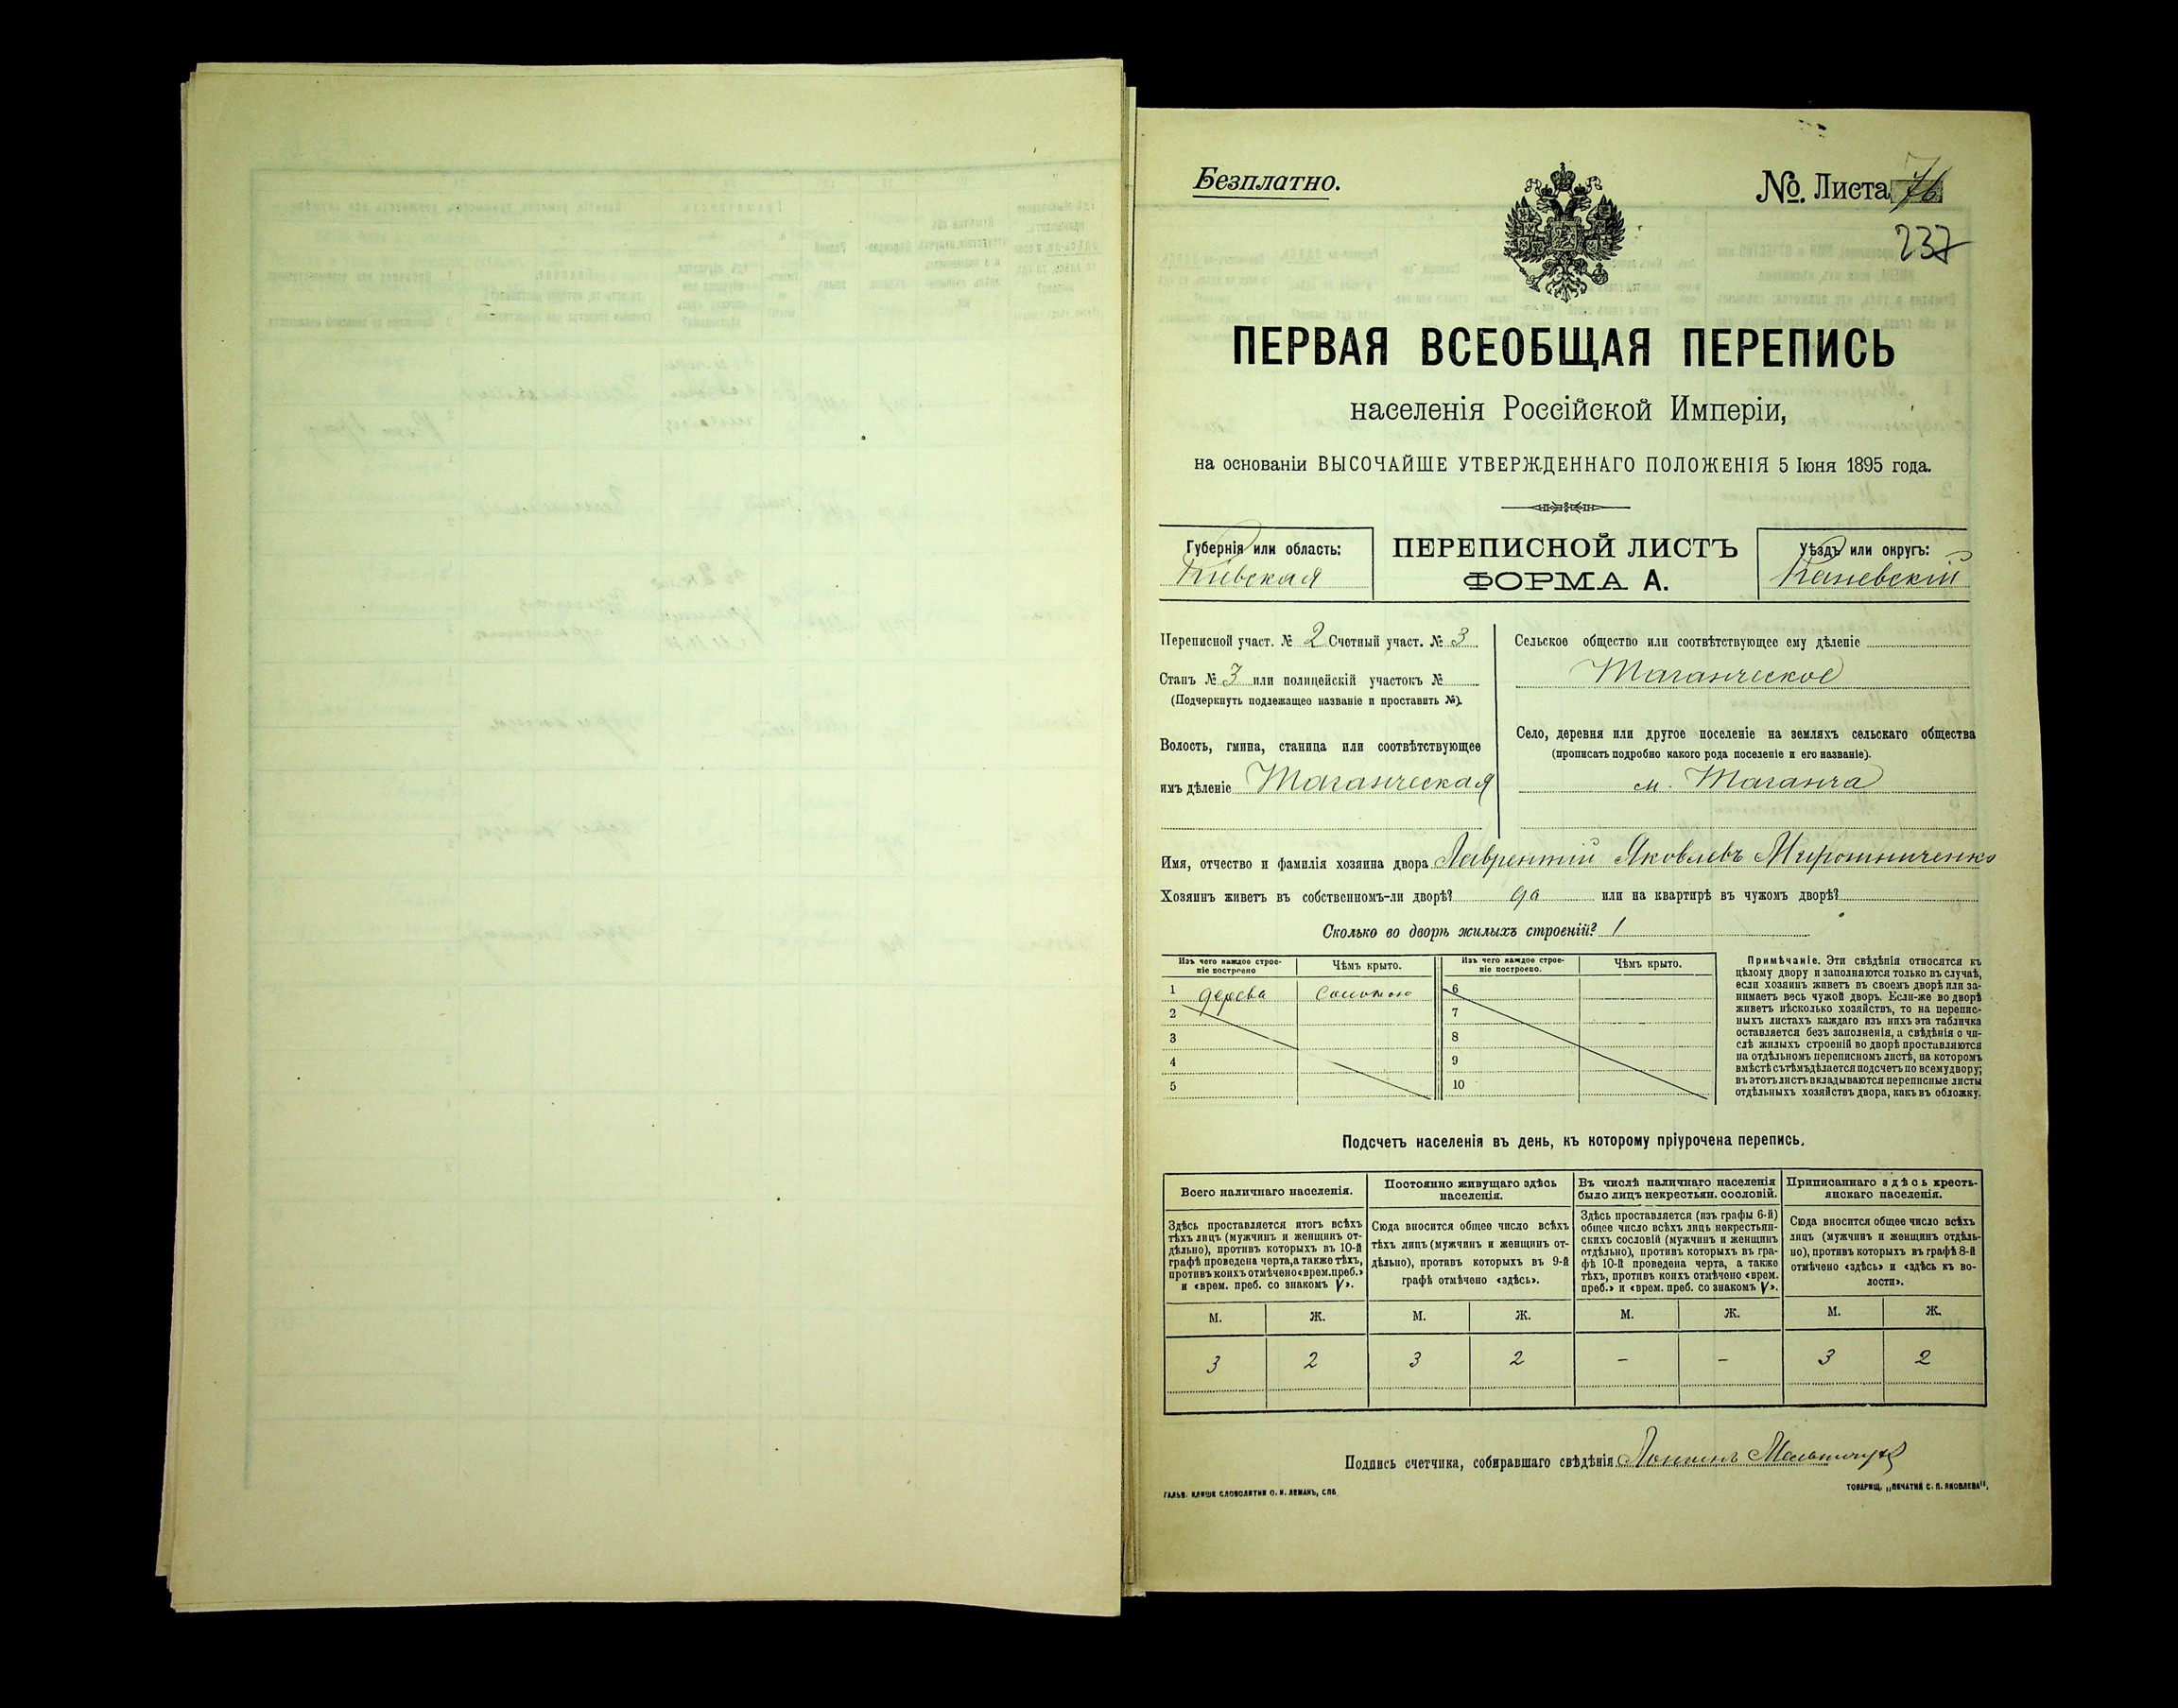 Безплатно.
№. Листа 76
237
ПЕРВАЯ ВСЕОБЩАЯ ПЕРЕПИСЬ
населенія Россійской Имперіи,
на основаніи ВЫСОЧАЙШЕ УТВЕРЖДЕННАГО ПОЛОЖЕНІЯ 5 Іюня 1895 года.
Губернія или область:
Кіевская
ПЕРЕПИСНОЙ ЛИСТЪ
ФОРМА А.
Уѣздъ или округъ:
Каневскій
Переписной участ. № 2 Счетный участ. № 3
Станъ № 3 или полицейскій участокъ №
(Подчеркнуть подлежащее названіе и проставить №).
Волость, гмина, станица или соотвѣтствующее
имъ дѣленіе Таганческая
Сельское общество или соотвѣтствующее ему дѣленіе
Таганческое
Село, деревня или другое поселеніе на земляхъ сельскаго общества
(прописать подробно какого рода поселеніе и его названіе).
м. Таганча
Имя, отчество и фамилія хозяина двора Лаврентій Яковлевъ Мирошниченко
Хозяинъ живетъ въ собственномъ-ли дворѣ? да или на квартирѣ въ чужомъ дворѣ?
Сколько во дворѣ жилыхъ строеній? 1
Изъ чего каждое строе-
ніе построено
Чѣмъ крыто.
Изъ чего каждое строе-
ніе построено.
Чѣмъ крыто.
1 дерева Соломою 6
2 7
3 8
4 9
5 10
Примѣчаніе. Эти свѣдѣнія относятся къ
цѣлому двору и заполняются только въ случаѣ,
если хозяинъ живетъ въ своемъ дворѣ или за-
нимаетъ весь чужой дворъ. Если-же во дворѣ
живетъ нѣсколько хозяйствъ, то на перепис-
ныхъ листахъ каждаго изъ нихъ эта табличка
оставляется безъ заполненія, а свѣдѣнія о чи-
слѣ жилыхъ строеній во дворѣ проставляются
на отдѣльномъ переписномъ листѣ, на которомъ
вмѣстѣ съ тѣмъ дѣлается подсчетъ по всему двору;
въ этотъ листъ вкладываются переписные листы
отдѣльныхъ хозяйствъ двора, какъ въ обложку.
Подсчетъ населенія въ день, къ которому пріурочена перепись.
Всего наличнаго населенія.
Здѣсь проставляется итогъ всѣхъ
тѣхъ лицъ (мужчинъ и женщинъ от-
дѣльно), противъ которыхъ въ 10-й
графѣ проведена черта, а также тѣхъ,
противъ коихъ отмѣчено «врем. преб.»
и «врем. преб. со знакомъ V».
Постоянно живущаго здѣсь
населенія.
Сюда вносится общее число всѣхъ
тѣхъ лицъ (мужчинъ и женщинъ от-
дѣльно), противъ которыхъ въ 9-й
графѣ отмѣчено «здѣсь».
Въ числѣ наличнаго населенія
было лицъ некрестьян. сословій.
Здѣсь проставляется (изъ графы 6-й)
общее число всѣхъ лицъ некрестьян-
скихъ сословій (мужчинъ и женщинъ
отдѣльно), противъ которыхъ въ гра-
фѣ 10-й проведена черта, а также
тѣхъ, противъ коихъ отмѣчено «врем.
преб.» и «врем. преб. со знакомъ V».
Приписаннаго здѣсь кресть-
янскаго населенія.
Сюда вносится общее число всѣхъ
лицъ (мужчинъ и женщинъ отдѣль-
но), противъ которыхъ въ графѣ 8-й
отмѣчено «здѣсь» и «здѣсь къ во-
лости».
М. Ж. М. Ж. М. Ж. М. Ж.
3 2 3 2 - - 3 2
Подпись счетчика, собиравшаго свѣдѣнія
ГАЛЬВ. КЛИШЕ СЛОВОЛИТНИ О. И. ЛЕМАНЪ, СПБ
ТОВАРИЩ. „ПЕЧАТНЯ С. П. ЯКОВЛЕВА".